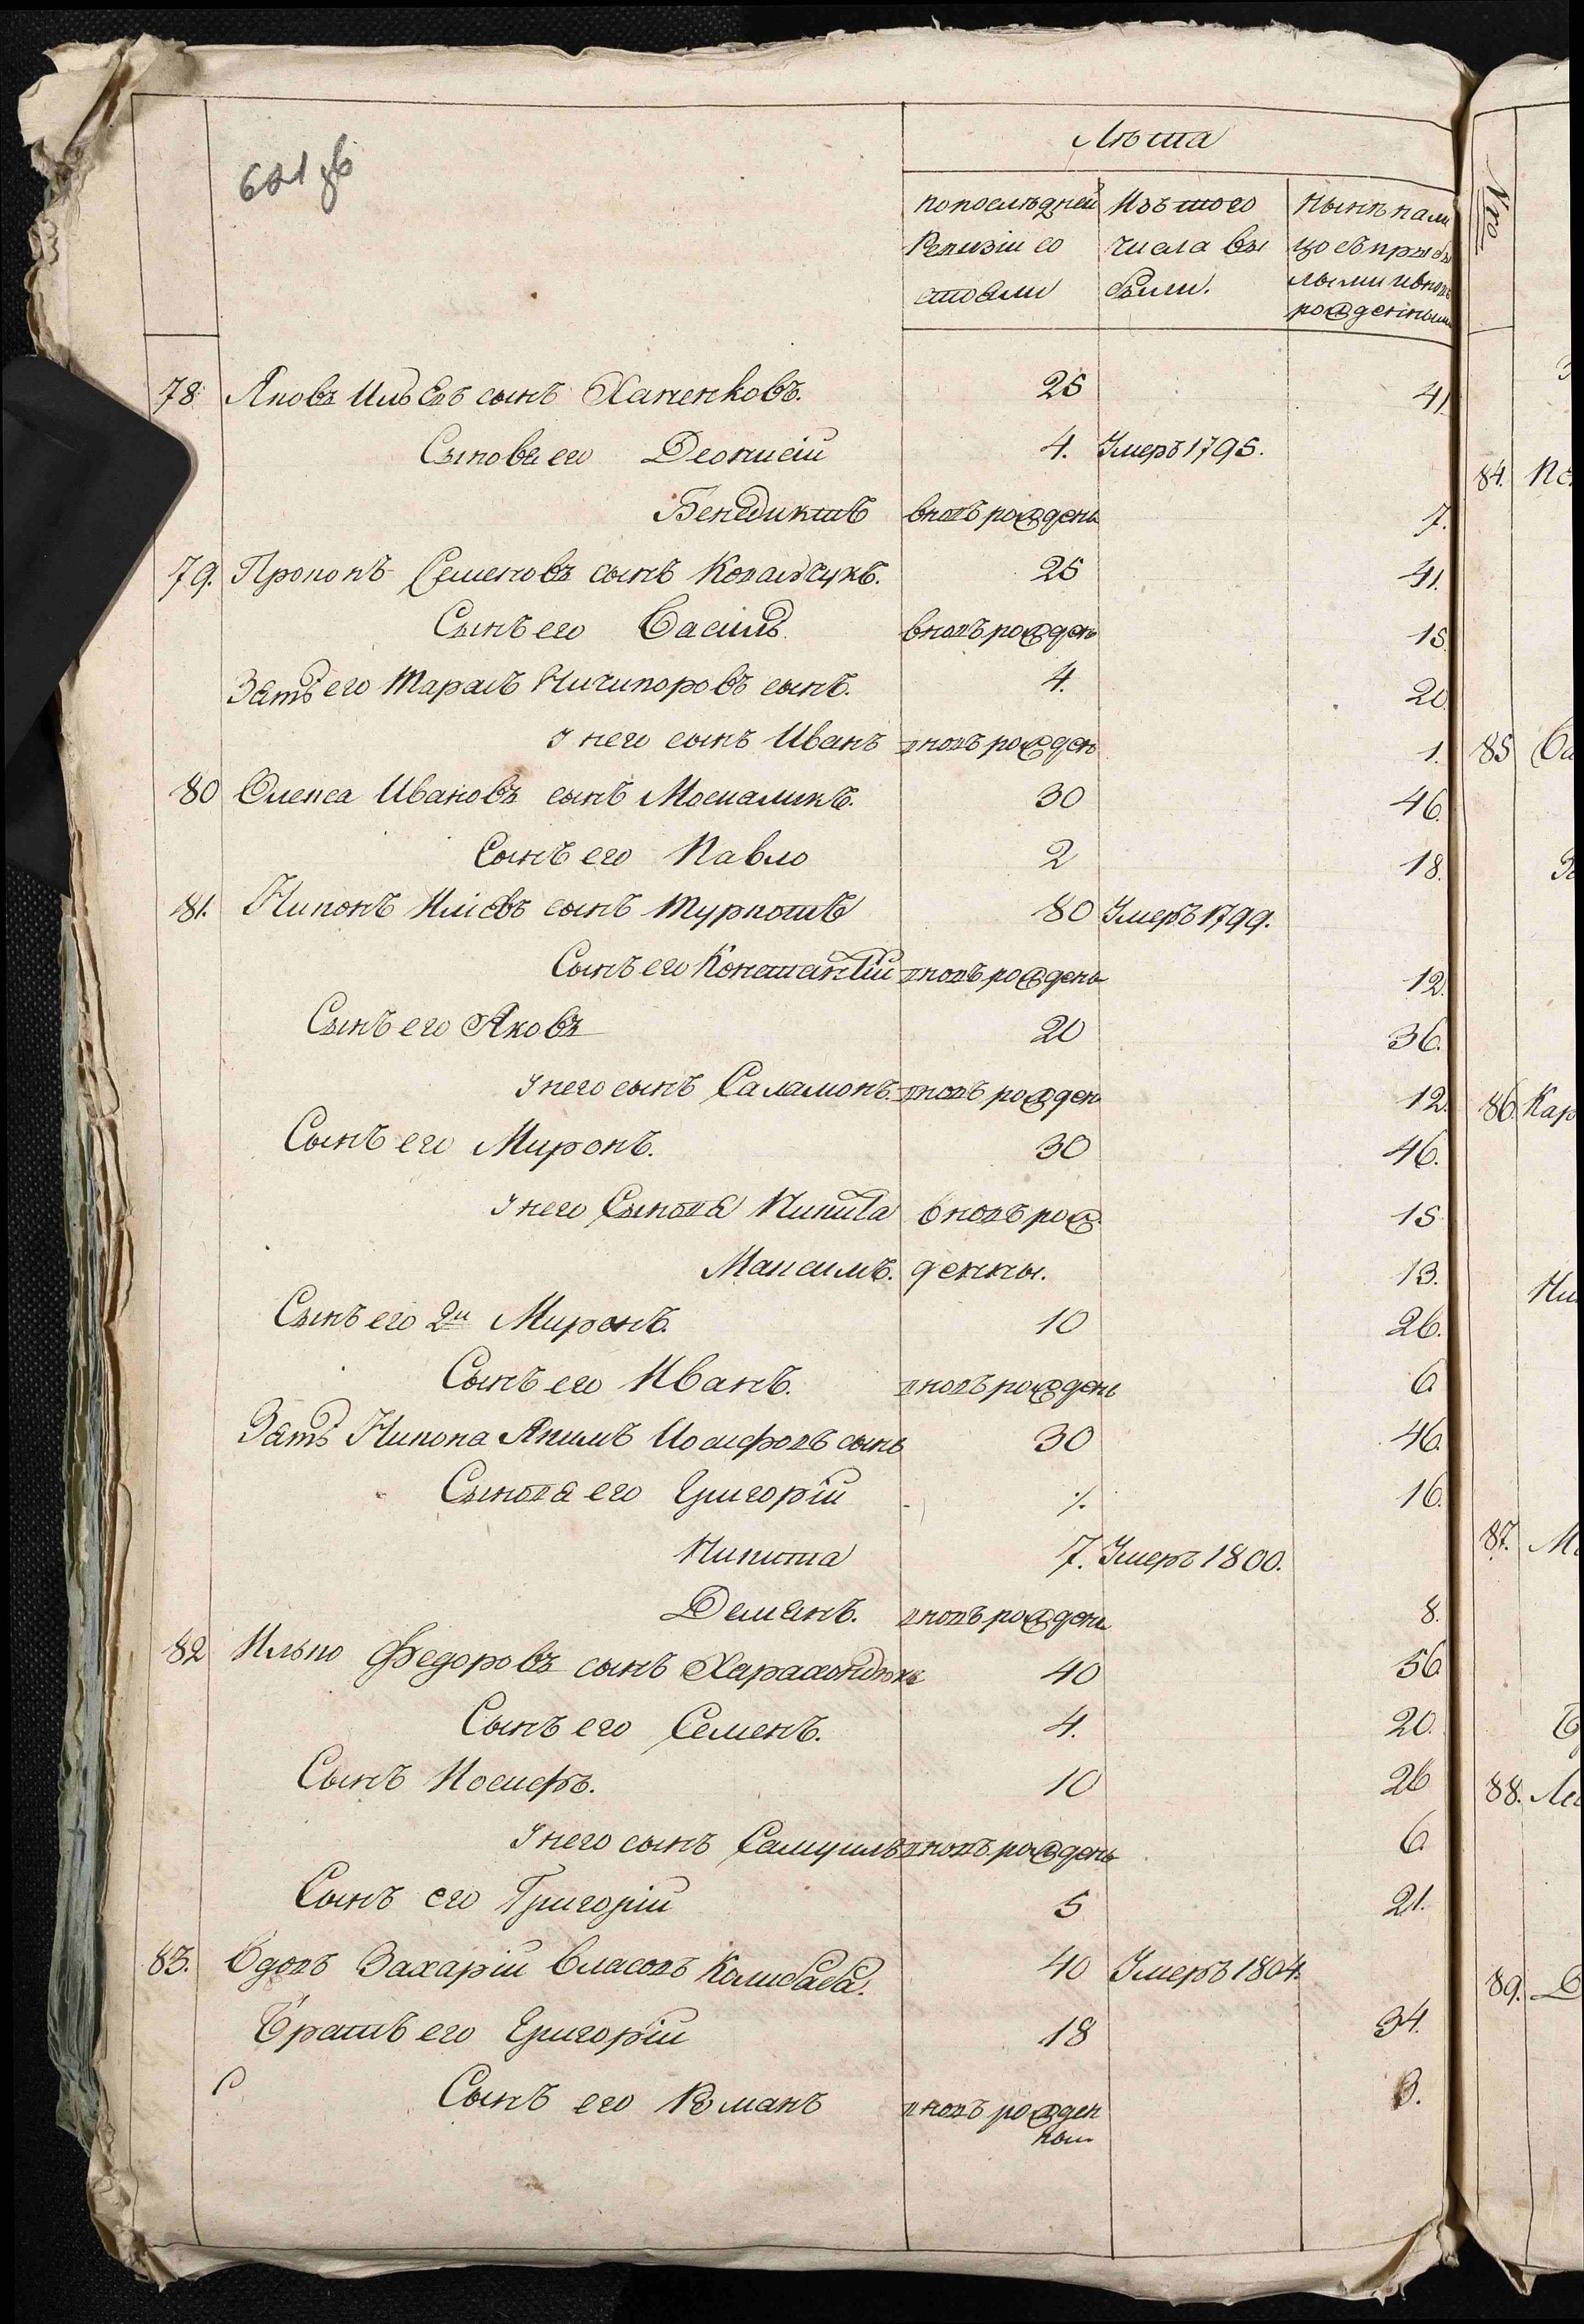 621 зв
Лѣта
попослѣдней Ревизiи состояли
Изъ того числа выбыли.
Нынѣ на лицо съ прибылыми и вновь рожденными
78 Яковъ Ильевъ сынъ Ханенковъ. 25 41
Сыновя его Деонисiй 4. Умеръ 1795.
Бенедиктъ вновь рожденъ 7.
79. Прокопъ Семеновъ сынъ Ковальчукъ. 25 41.
Сынъ его Василь вновь рожденъ 15
Зять его Тарасъ Ничипоровъ сынъ. 4. 20.
У него сынъ Иванъ вновь рожденъ 1.
80 Олекса Ивановъ сынъ Москаликъ. 30 46.
Сынъ его Павло 2 18.
81. Никонъ Илiевъ сынъ Туркотъ 80 Умеръ 1799.
Сынъ его Константiй вновь рожденъ 12.
Сынъ его Яковъ 20 36.
У него сынъ Саламонъ. вновь рожден 12.
Сынъ его Миронъ. 30 46.
У него Сыновя Никита вновь рож 15
Максимъ. денны. 13.
Сынъ его 2й Миронъ. 10 26.
Сынъ его Иванъ. вновь рожденъ 6
Зять Никона Якимъ Иосифовъ сынъ 30 46.
Сыновя его Григорiй ⁒ 16.
Никита 7. Умеръ 1800.
Демянъ. вновь рожденъ 8.
82 Илько Федоровъ сынъ 40 56
Сынъ его Семенъ. 4. 20.
Сынъ Иосифъ. 10 26
У него сынъ Самуилъ вновь рожденъ 6
Сынъ его Григорiй 5 21.
83. Вдовъ Захарiй Власовъ Колибаба. 40 Умеръ 1804.
Братъ его Григорiй 18 34.
Сынъ его Романъ вновь рожден 3.
ный
Nro
84.
85
86 Кар
87.
88.
89.